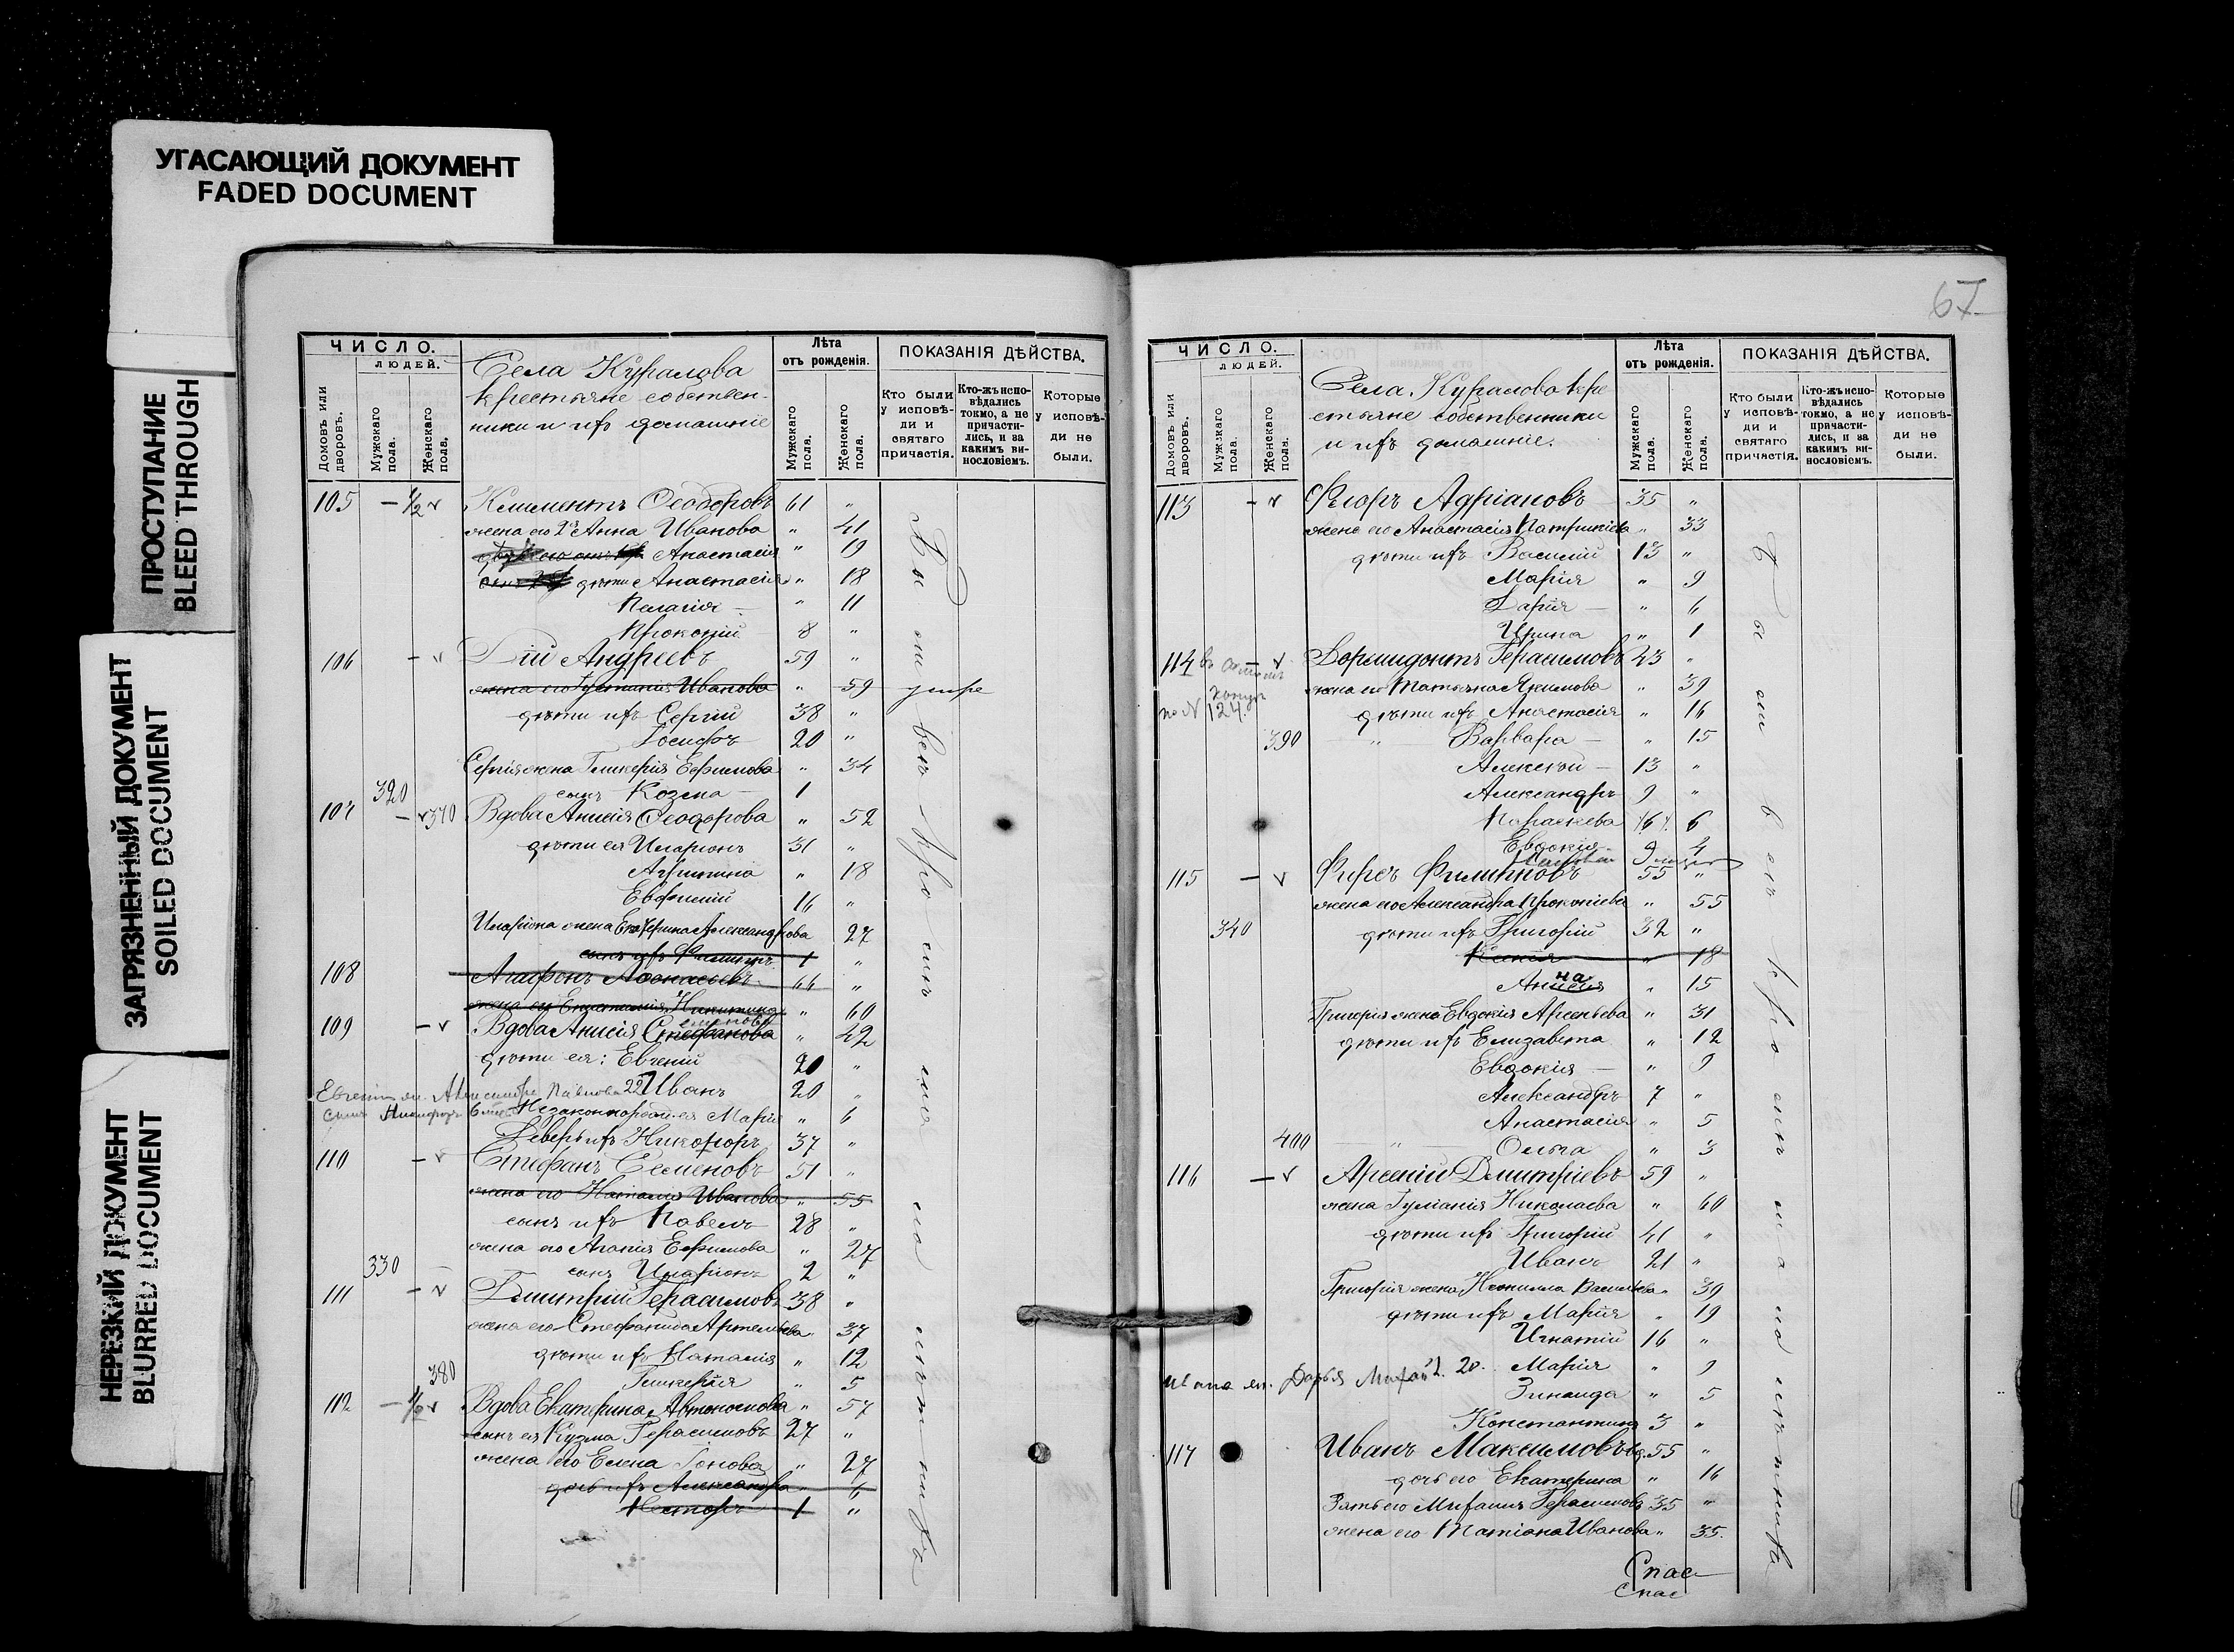 УГАСАЮЩИЙ ДОКУМЕНТ
FADED DOCUMENT
ПРОСТУПАНИЕ
BLEED THROUGH
ЗАГРЯЗНЕННЫЙ ДОКУМЕНТ
SOILED DOCUMENT
НЕРЕЗКИЙ ДОКУМЕНТ
BLURRED DOCUMENT
ЧИСЛО.
ЛЮДЕЙ.
Домовъ или дворовъ.
Мужскаго пола.
Женскаго пола.
Села Куралова
крестьяне собствен-
ники и ихъ домашніе
Лѣта
отъ рожденія.
Мужскаго пола.
Женскаго пола.
ПОКАЗАНІЯ ДѢЙСТВА.
Кто были у исповѣди и святаго причастія.
Кто-жъ исповѣдались токмо, а не причастились, и за какимъ винословіемъ.
Которые у исповѣди не были.
105 — ½ v Климентъ Ѳеодоровъ 61 "
жена его 2я Анна Иванова " 41
Анастасія " 19
дѣти Анастасія " 18
Пелагія — " 11
Прокопій 8 "
106 — v Дій Андреевъ 59 "
жена его Іустинія Иванова " 59
дѣти ихъ Сергій 38 "
Іосифъ 20 "
Сергія жена Гликерія Ефимова " 34
320 сынъ Козма — 1
107 — v 370 Вдова Анисія Ѳеодорова " 52
дѣти ея Иларіонъ 31 "
Агрипина " 18
Евфимій 16 "
Иларіона жена Екатерина Александрова " 27
сынъ ихъ Филиппъ 1 "
108 Агафонъ Аѳонасьевъ 66 "
жена его Никитина " 60
109 — v Вдова Анисія Стефанова " 42
дѣти ея: Евгеній 20 "
Евгенія Александра Павлова 22 Иванъ 20 "
сынъ Никифоръ Незаконнорожд. ея Марія " 6
Деверь ихъ Никифоръ 37 "
110 — v Стефанъ Семеновъ 51 "
жена его Наталія Иванова " 55
сынъ ихъ Павелъ 28 "
жена его Агапія Ефимова " 27
330 сынъ Иларіонъ 2 "
111 — v Димитрій Герасимовъ 38 "
жена его Стефанида Артемьева " 37
дѣти ихъ Наталія " 12
380 Гликерія " 5
112 — ½ v Вдова Екатерина Автономова " 57
сынъ ея Кузма Герасимовъ 27 "
жена его Елена Іонова " 27
дочь ихъ Александра " 6
Несторъ 1 "
67
ЧИСЛО.
ЛЮДЕЙ.
Домовъ или дворовъ.
Мужскаго пола.
Женскаго пола.
Села Куралова кре
стьяне собственники
и ихъ домашніе.
Лѣта
отъ рожденія.
Мужскаго пола.
Женскаго пола.
ПОКАЗАНІЯ ДѢЙСТВА.
Кто были у исповѣди и святаго причастія.
Кто-жъ исповѣдались токмо, а не причастились, и за какимъ винословіемъ.
Которые у исповѣди не были.
113 — v Флоръ Адріановъ 35 "
жена его Анастасія Патрикіева " 33
дѣти ихъ Василій 13 "
Марія " 9
Дарія — " 6
Ирина " 1
114 — v Дормидонтъ Герасимовъ 43 "
жена его Татьяна Якимова " 39
по № 124. дѣти ихъ Анастасія " 16
390 " Варвара — " 15
Алексѣй — 13 "
Александръ 9 "
Параскева 6
Евдокія 4
115 — v Фирсъ Филиповъ 55 "
жена его Александра Прокопіева " 55
340 дѣти ихъ Григорій 32 "
Ксенія " 18
Анна " 15
Григорія жена Евдокія Арсеньева " 31
дѣти ихъ Елизавета " 12
Евдокія — " 9
Александръ 7 "
Анастасія " 5
400 " Ольга " 3
116 — v Арсеній Димитріевъ 59 "
жена Іуліанія Николаева " 60
дѣти ихъ Григорій 41 "
Иванъ 21 "
Григорія жена Неонилла Васильева " 39
дѣти ихъ Марія " 19
Игнатій 16 "
Дарья 20. Марія " 9
Зинаида " 5
Константинъ 3 "
117 Иванъ Максимовъ вд. 55 "
дочь его Екатерина " 16
Зять его Михаилъ Герасимовъ 35 "
жена его Татіана Иванова " 35.
Спас
Спас